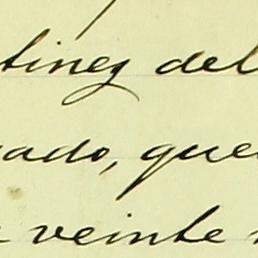 tinez del
ado, que
veinte